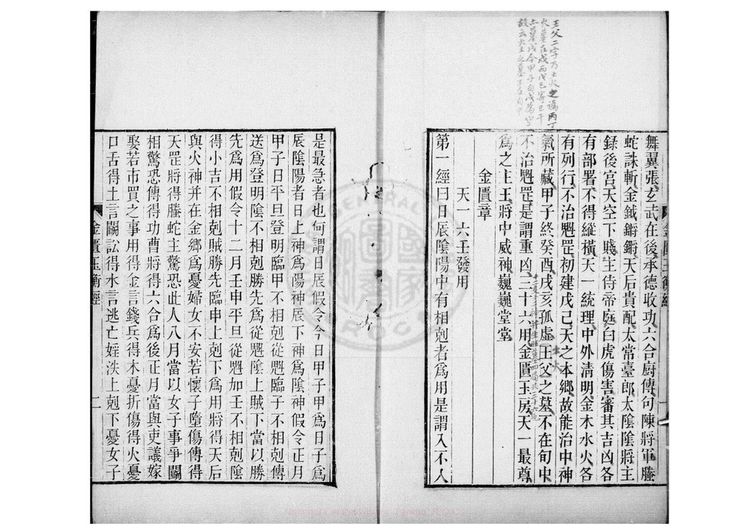 舞翼張玄武在後承德收功六合廚傳句陳將軍騰
蛇誅斬金鉞鏘鏘天后貴配太常臺郎太陰陰將主
錄後宮天空下賤主侍帝庭白虎傷害審其吉凶各
有部署不得縱橫天一統理中外清明金木水火各
有列行不治魁罡初建戊己天之本鄉故能治中神
氣所藏甲子終癸酉戌亥孤虛王父之墓不在旬中
不治魁罡是謂重凶三十六用金匱玉房天一最尊
爲之主王將中威神巍巍堂堂
金匱章
天一六壬發用
第一經曰日辰陰陽中有相剋者爲用是謂入不人
金匱玉衡經
一
是最急者也何謂日辰假令今日甲子甲爲日子爲
辰陰陽者日上神爲陽神辰下神爲陰神假令正月
甲子日平旦登明臨甲不相剋從魁臨子不相剋傳
送爲登明陰不相剋勝先爲從魁陰上賊下當以勝
先爲用假令十二月壬申平旦從魁加壬不相剋陰
得小吉不相剋賊勝先臨申上剋下爲用將得天后
與火神并在金鄉爲憂婦女不安若懷子墮傷傳得
天罡將得騰蛇主驚恐此人八月當以女子事爭鬭
相驚恐傳得功曹將得六合爲後正月當與吏議嫁
娶若市買之事用得金言錢兵得木憂折傷得火憂
口舌得土言鬭訟得水言逃亡婬泆上剋下憂女子
金匱玉衡經
二